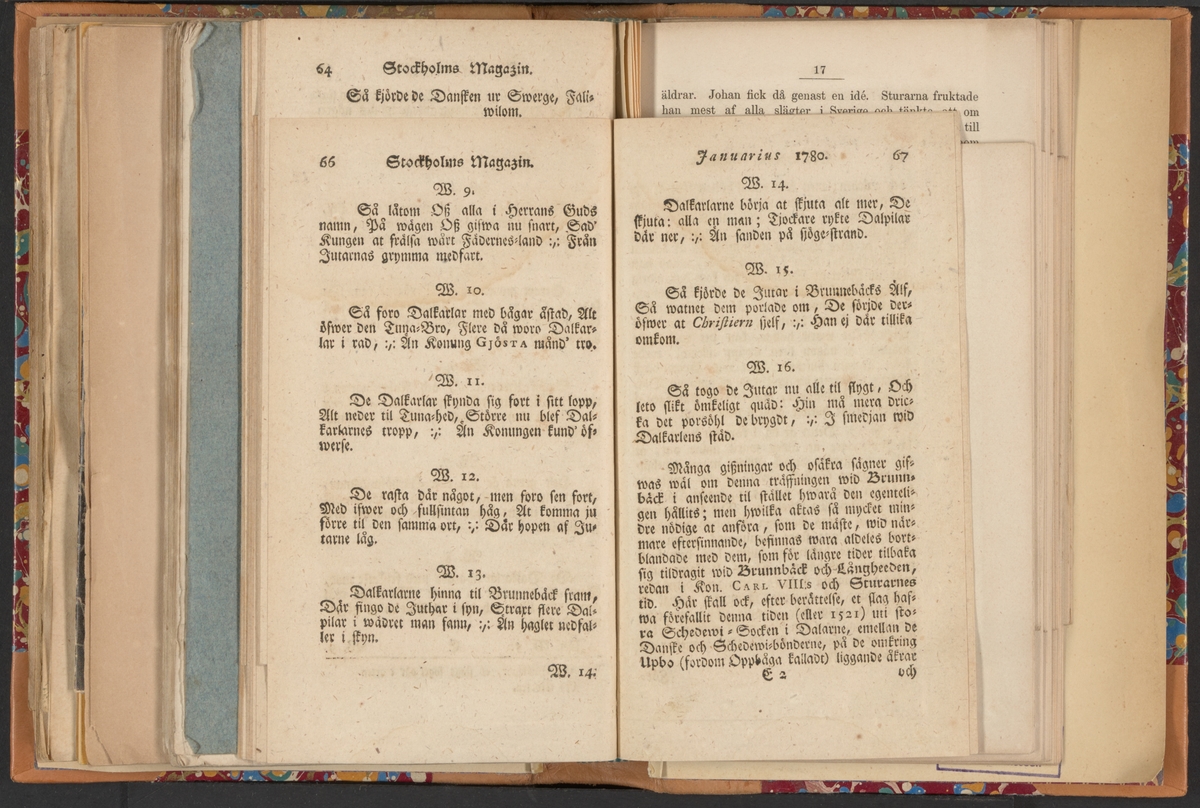 64 Stockholms Magazin.
Så kjörde de Dansken ur Swerge, Fali-
wilom.
17
äldrar. Johan fick då genast en idé. Sturarna fruktade
han mest af alla slägter i Sverige och tänkte att om
till
66 Stockholms Magazin.
W. 9.
Så låtom Oß alla i Herrans Guds
namn, På wägen Oß gifwa nu snart, Sad'
Kungen at frälsa wårt Fädernes-land :,: Från
Jutarnas grymma medfart.
W. 10.
Så foro Dalkarlar med bågar åstad, Alt
öfwer den Tuna-Bro, Flere då woro Dalkar-
lar i rad, :,: Än Konung GJÖSTA månd' tro.
W. 11.
De Dalkarlar skynda sig fort i sitt lopp,
Alt neder til Tuna-hed, Större nu blef Dal-
karlarnes tropp, :,: Än Konungen kund' öf-
werse.
W. 12.
De rasta där något, men foro sen fort,
Med ifwer och fullsintan håg, At komma ju
förre til den samma ort, :,: Där hopen af Ju-
tarne låg.
W. 13.
Dalkarlarne hinna til Brunnebäck fram,
Där fingo de Juthar i syn, Straxt flere Dal-
pilar i wädret man fann, :,: Än haglet nedfal-
ler i skyn.
W. 14.
Januarius 1780. 67
W. 14.
Dalkarlarne börja at skjuta alt mer, De
skjuta: alla en man; Tjockare rykte Dalpilar
där ner, :,: Än sanden på sjöge-strand.
W. 15.
Så kjörde de Jutar i Brunnebäcks Älf,
Så watnet dem porlade om, De sörjde der-
öfwer at Christiern sjelf, :,: Han ej där tillika
omkom.
W. 16.
Så togo de Jutar nu alle til flygt, Och
leto slikt ömkeligt quäd: Hin må mera dric-
ka det porsöhl de brygdt, :,: I smedjan wid
Dalkarlens städ.
Många gißningar och osäkra sägner gif-
was wäl om denna träffningen wid Brunn-
bäck i anseende til stället hwarå den egenteli-
gen hållits; men hwilka aktas så mycket min-
dre nödige at anföra, som de mäste, wid när-
mare eftersinnande, befinnas wara aldeles bort-
blandade med dem, som för längre tider tilbaka
sig tildragit wid Brunnbäck och Långheeden,
redan i Kon. CARL VIII:s och Sturarnes
tid. Här skall ock, efter berättelse, et slag haf-
wa förefallit denna tiden (eller 1521) uti sto-
ra Schedewi-Socken i Dalarne, emellan de
Danske och Schedewi-bönderne, på de omkring
Upbo (fordom Oppbåga kalladt) liggande åkrar
E 2 och